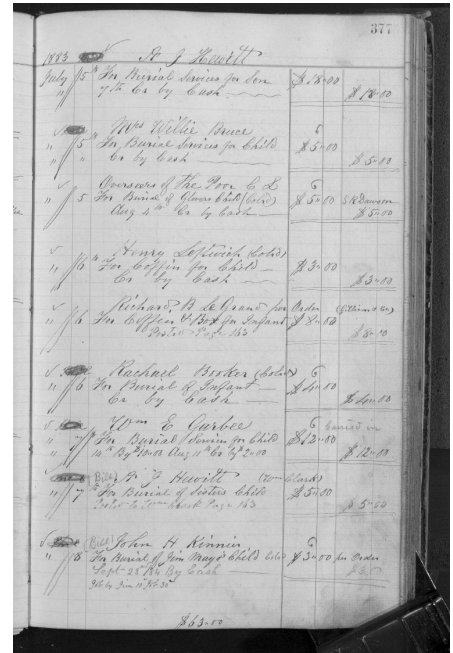 377
1883 A J Hewitt
July 5th For Burial Services for Son $18.00
" 7th Cr by Cash $18.00
Mrs Willie Bruce
" 5th For Burial Services for Child $5.00
" " Cr by Cash $5.00
Overseers of the Poor C L
" 5 For Burial of Child (Cold) $5.00
Aug 4th Cr by Cash $5.00
Henry Leftwich (Cold)
" 6th For Coffin for Child $3.00
" " Cr by Cash $3.00
Richard B Le Grand per Order
" 6 For Coffin & Box for Infant $8.00
Posted Page 163 $8.00
Rachael Booker (Cold)
" 6 For Burial of Infant $4.00
Cr by Cash $4.00
Wm E Garbee
" 7th For Burial Services for Child $12.00
14th By $10.00 Aug 11th Cr by 2.00 $12.00
(Bill) A J Hewitt (Wm Clark)
" 7th For Burial of Sisters Child $5.00
Page 163 $5.00
(Bill) John H Kinnier
" 8 For Burial of Jim Mays Child Cold $3.00 per Order
Sept 25 1884 By Cash
$63.00